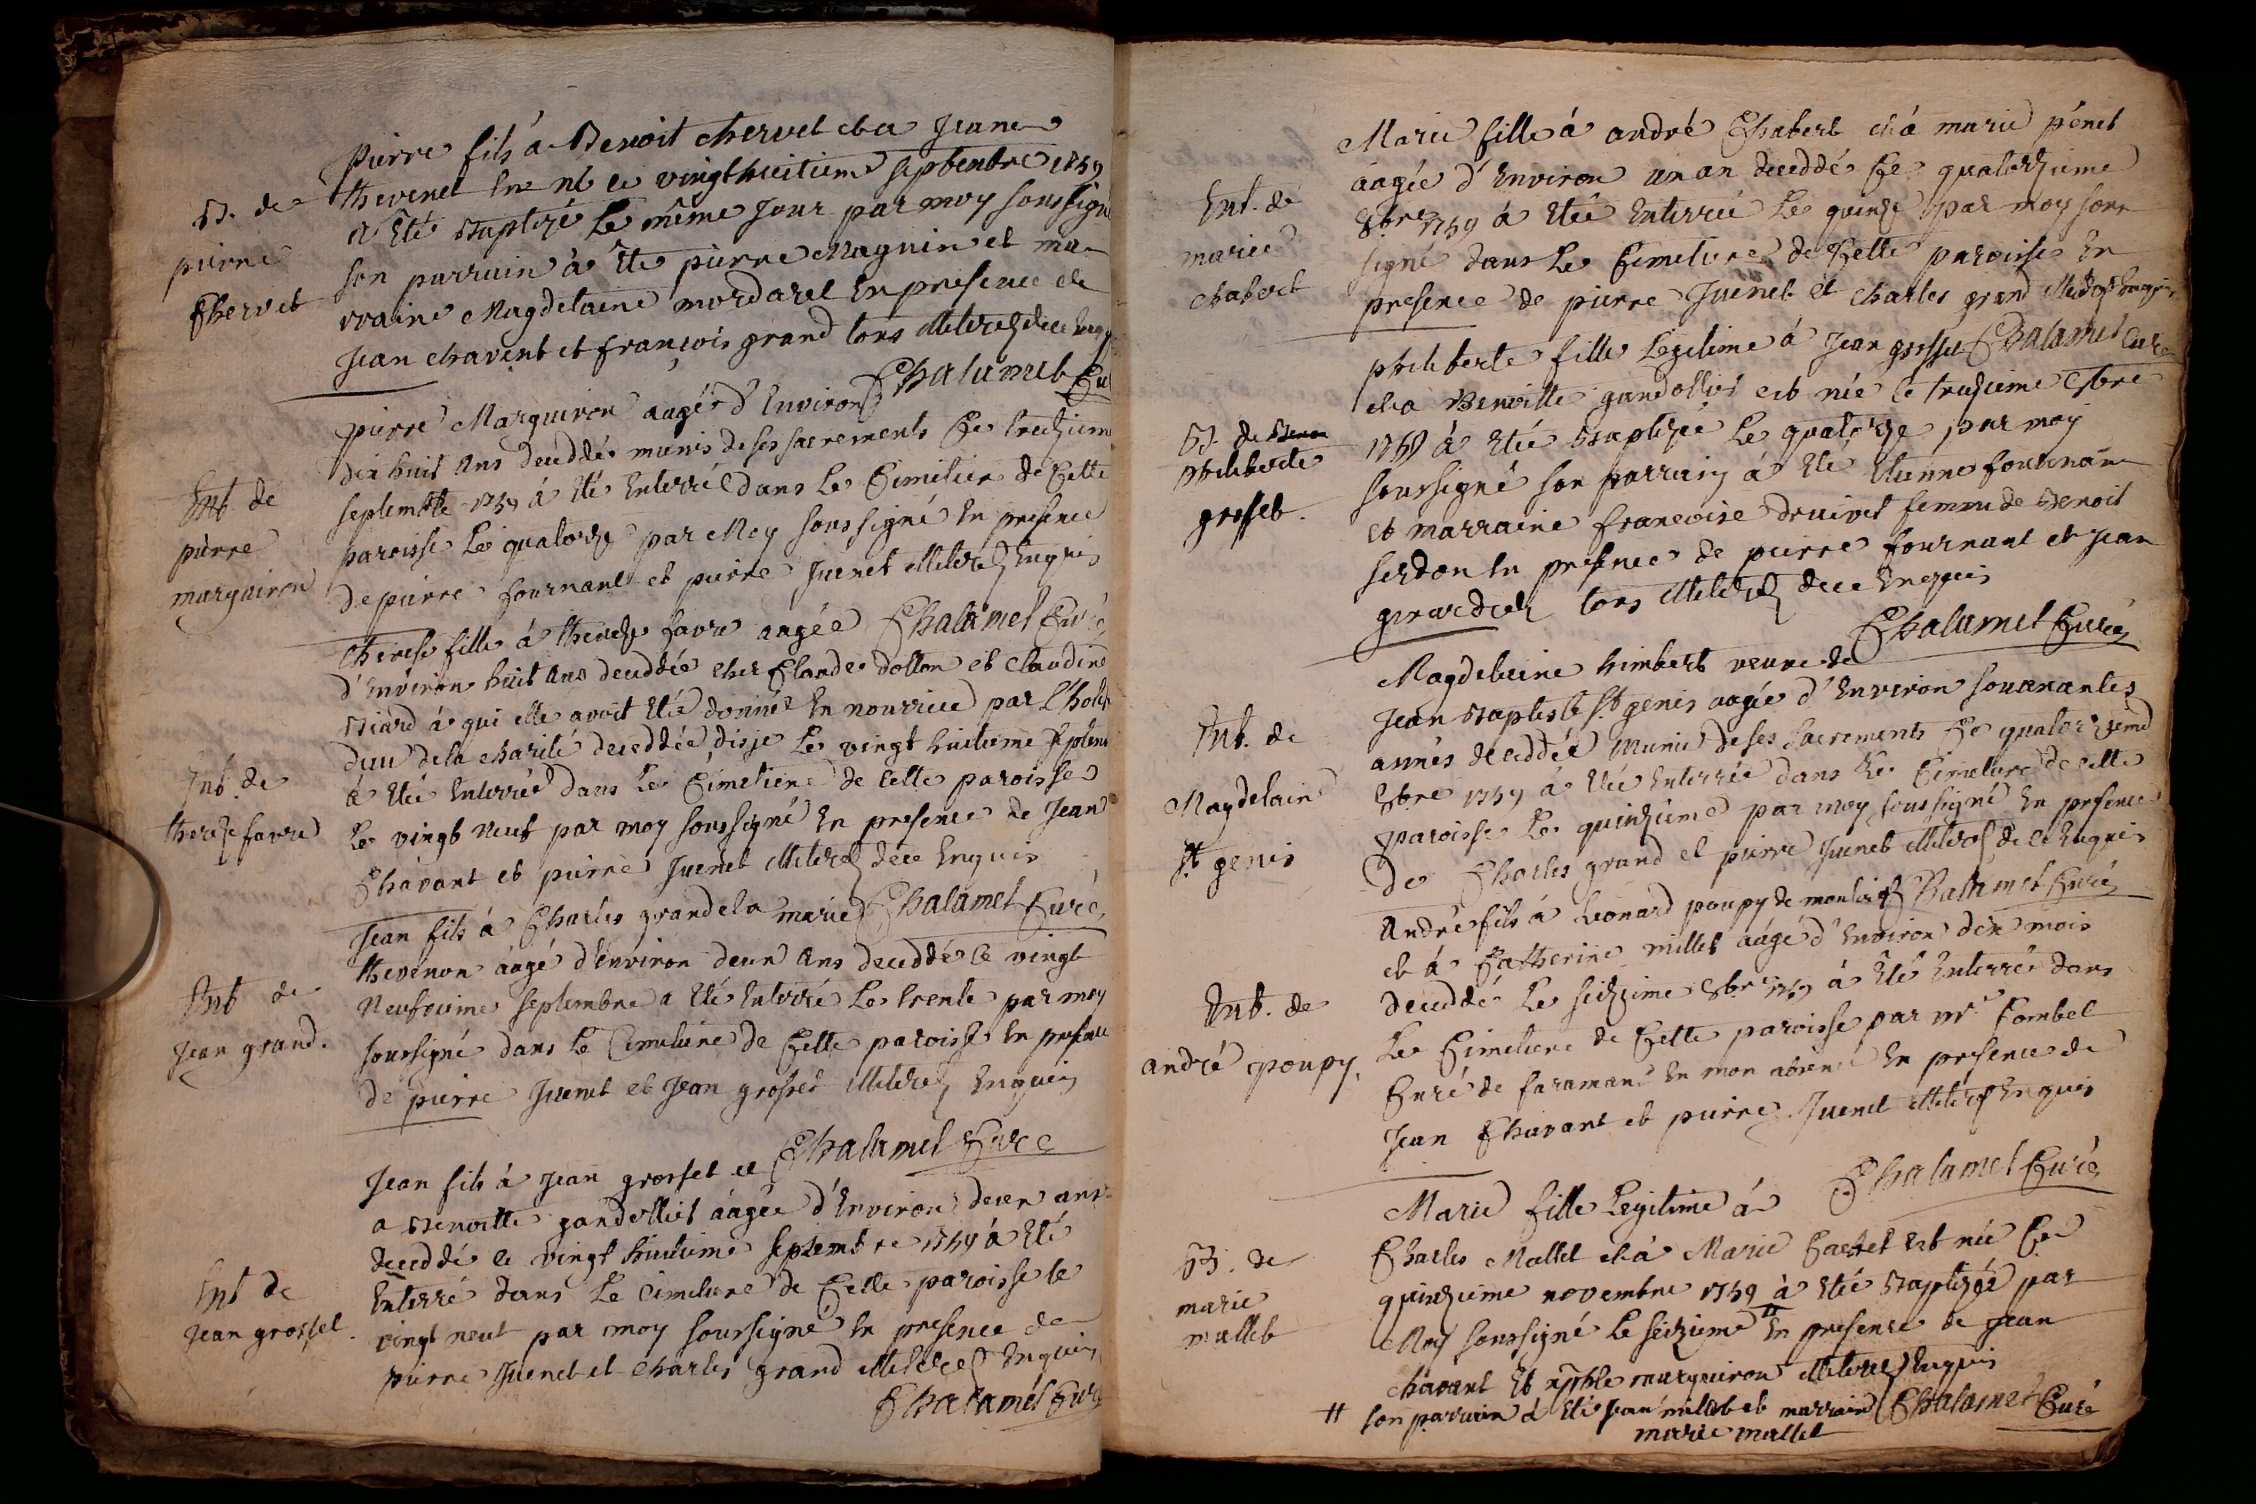 B. de
pierre
Chervet
Pierre fils à Benoit chervet et a Jeane
thevenet en nt le vingthuitieme septembre 1759
a Eté Baptizé Le même Jour par moy soussigné
son parrain à Eté pierre Magnin et ma
rraine Magdelaine mordarel En presence de
Jean chavent et françois grand tous illiterez de ce Enquis
Chalamel Curé
Ent de
pierre
marguiron
pierre Marguiron aagée d'Environ
dix huit ans deceddée munis de ses sacrements Le treizieme
septembre 1759 à Eté Enterré dans Le Cimetiere de Cette
paroisse Le quatorze par Moy soussigné En presence
de pierre fournant et pierre Juenet illiterez Enquis
Chalamel Curé
Ent. de
thereze favre
therese fille à thereze favre aagée
d'Environ huit ans deceddée chez Claude dollon et Claudine
Biard à qui elle avoit Eté donnée En nourrice par L'hotel
dieu de la charité deceddée disje Le vingt huitieme septembre
à Eté Enterrée dans Le Cimetiere de Cette paroisse
Le vingt neuf par moy soussigné En presence de Jean
Chavant et pierre Juenet illiterez de ce Enquis
Chalamel Curé
Ent de
Jean grand.
Jean fils à Charles grand et a marie
thevenon aagé d'Environ deux ans deceddé Le vingt
Neufvieme septembre a Eté Enterré Le trente par moy
soussigné dans Le Cimetiere de Cette paroisse En presence
de pierre Juenet et Jean grosset illiterez Enquis
Chalamel Curé
Ent de
Jean grosset.
Jean fils à Jean grosset et
a Benoitte gandolliet aagée d'Environ deux ans
deceddé le vingt huitieme septembre 1759 à Eté
Enterré dans Le Cimetiere de Cette paroisse le
vingt neuf par moy soussigné En presence de
pierre Juenet et Charles grand illiterez Enquis
Chalamel Curé
Ent. de
marie
chabert
Marie fille à andré Chabert et à marie pénet
aagée d'Environ un an deceddé Le quatorzieme
8bre 1759 à Etée Enterrée Le quinze par moy sous
signé dans Le Cimetiere de Cette paroisse En
presence de pierre Juenet et Charles grand illiterez Enquis
Chalamel Curé
B. de
philiberte
grosset.
philiberte fille Legitime à Jean grosset
et a Benoitte gandolliet est née le treizieme 8bre
1759 à Etée Baptizée Le quatorze par moy
soussigné son parrain à Eté Etienne fournan
et marraine francoise druivet femme de Benoit
serdon En presence de pierre fournant et Jean
girardet tous illiterez de ce Enquis
Chalamel Curé
Ent. de
Magdelaine
St genis
Magdeleine himbert veuve de
Jean Baptiste St genis aagée d'Environ souxantes
annés deceddée munie de ses sacrements Le quatorzieme
8bre 1759 à Etée Enterrée dans Le Cimetiere de cette
paroisse Le quinzieme par moy soussigné En presence
de Charles grand et pierre Juenet illiterez de ce Enquis
Chalamel Curé
Ent. de
andré poupy.
André fils à Leonard poupy de
et à Catherine millet aagé d'Environ dix mois
deceddé Le seizieme 8bre 1759 à Eté Enterré dans
Le Cimetiere de Cette paroisse par mr. Combel
Curé de faramans En mon absence En presence de
Jean Chavant et pierre Juenet illiterez Enquis
Chalamel Curé
B. de
marie
mallet
Marie fille Legitime à
Charles Mallet et à Marie Cachet Est née Le
quinzieme novembre 1759 à Etée Baptizée par
Moy soussigné Le seizieme # En presence de Jean
chavant Et marguiron illiterez Enquis
# son parrain à Eté Jean millet et marraine Chalamel Curé
marie mallet